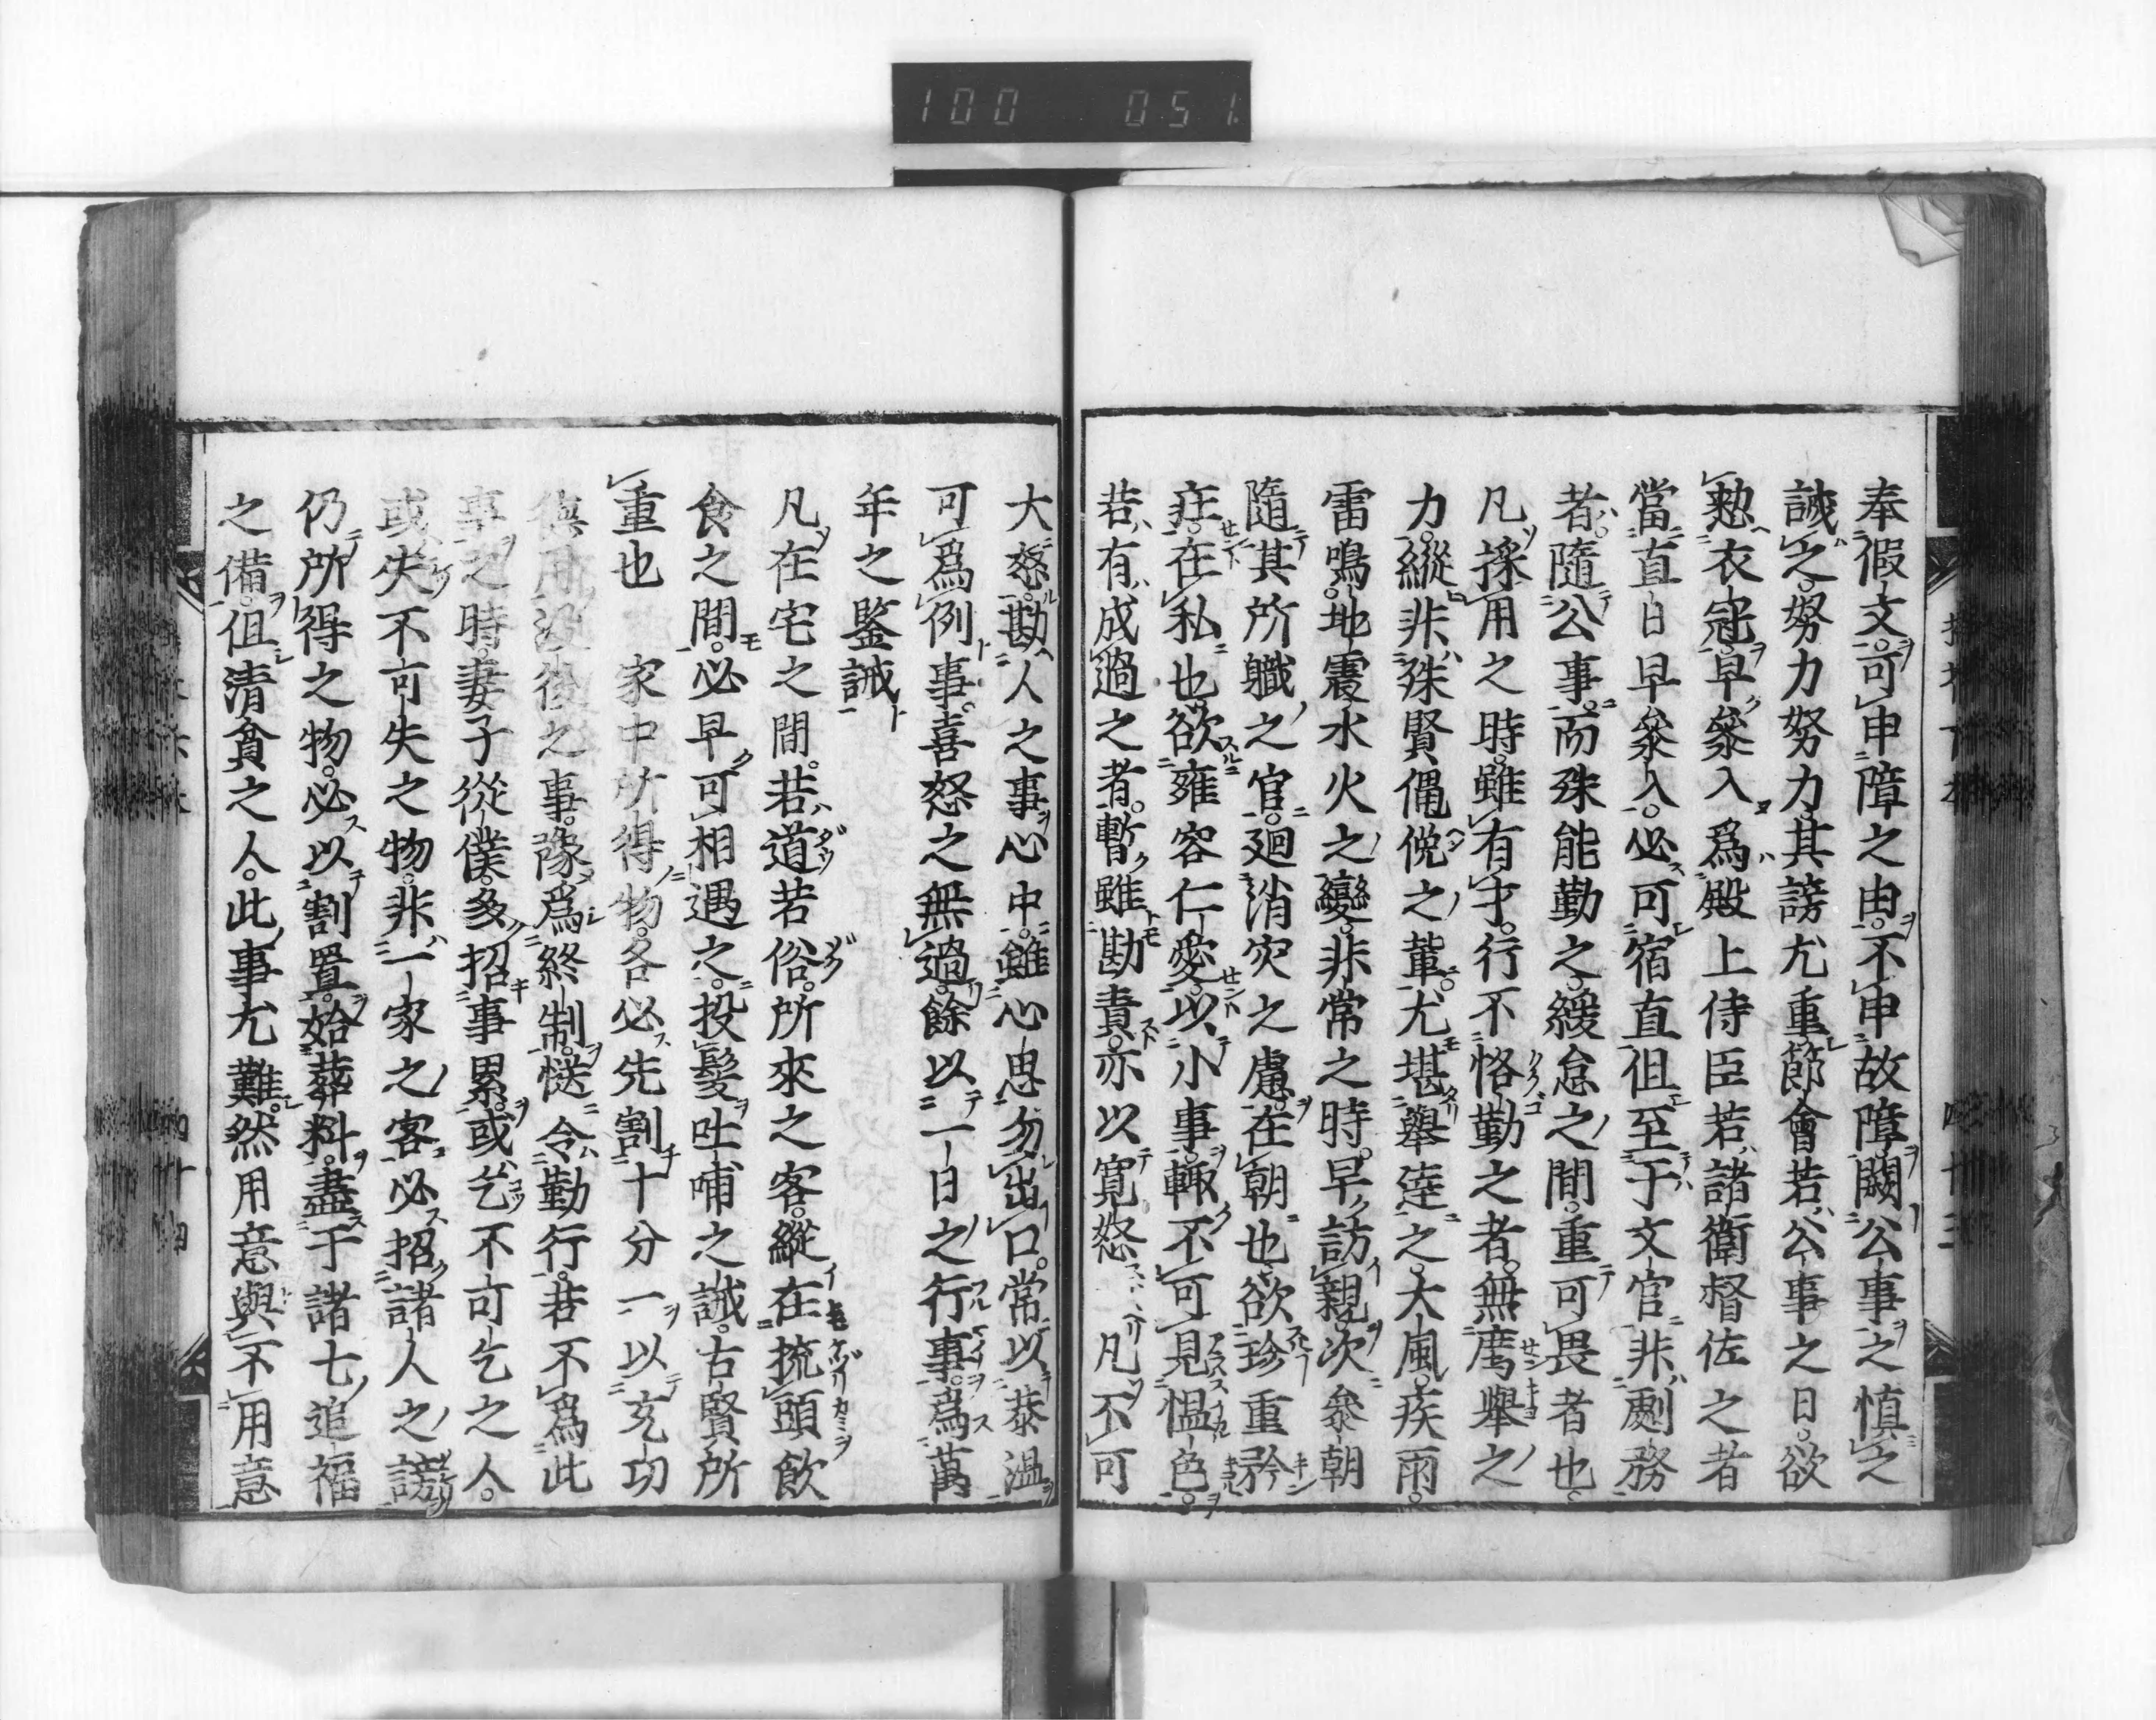 100 051
奉假文。可申障之由。不申故障。闕公事之慎之
誡之。努力努力。其謗尤重。節會若公事之日。欲
整衣冠。早參入。爲殿上侍臣若諸衛督佐之者
當直日早參入。必可宿直。但至于文官非劇務
者。隨公事。而殊能勤之。緩怠之間。重可畏者也。
凡採用之時。雖有才。行不恪勤之者。無薦舉之
力。縱非殊賢。僶俛之輩。尤堪舉達之。大風。疾雨。
雷鳴。地震。水火之變。非常之時。早訪親。次參朝
隨其所職之官。廻消災之慮。在朝也欲珍重矜
莊。在私也欲雍容仁愛。以小事。輙不可見慍色。
若有成過之者。暫雖勘責。亦以寬恕 凡不可
大怒。勘人之事心中。雖心思勿出口。常以恭温
可爲例事。喜怒之無過。餘以一日之行事。爲萬
年之鑒誡
凡在宅之間。若道若俗。所來之客。縱在梳頭飲
食之間。必早可相遇之。投髮吐哺之誡。古賢所
重也 家中所得物。各必先割十分一以充功
德用。沒後之事。豫爲終制。慥令勤行。若不爲此
事之時。妻子從僕。多招事累。或乞不可乞之人。
或失不可失之物。非一家之害。必招諸人之謗
仍所得之物。必以割置。始葬料。盡于諸七追福
之備。但清貧之人。此事尤難。然用意與不用意